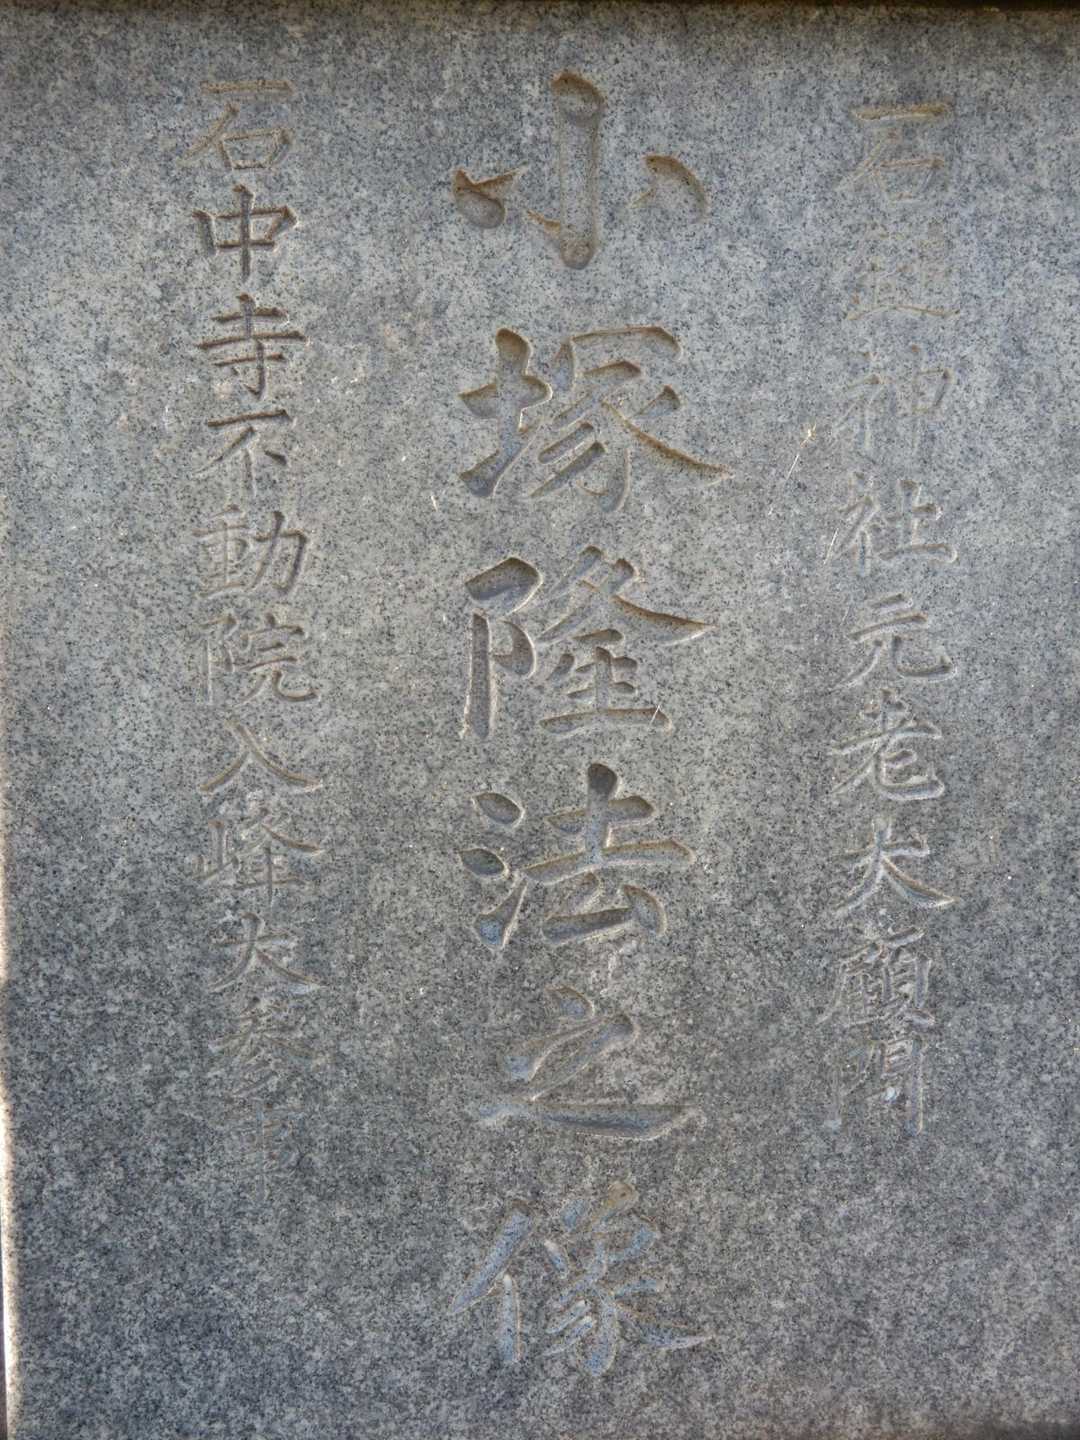 石鎚神社元老大顧問
小塚隆法之像
石中寺不動院入峰大参事